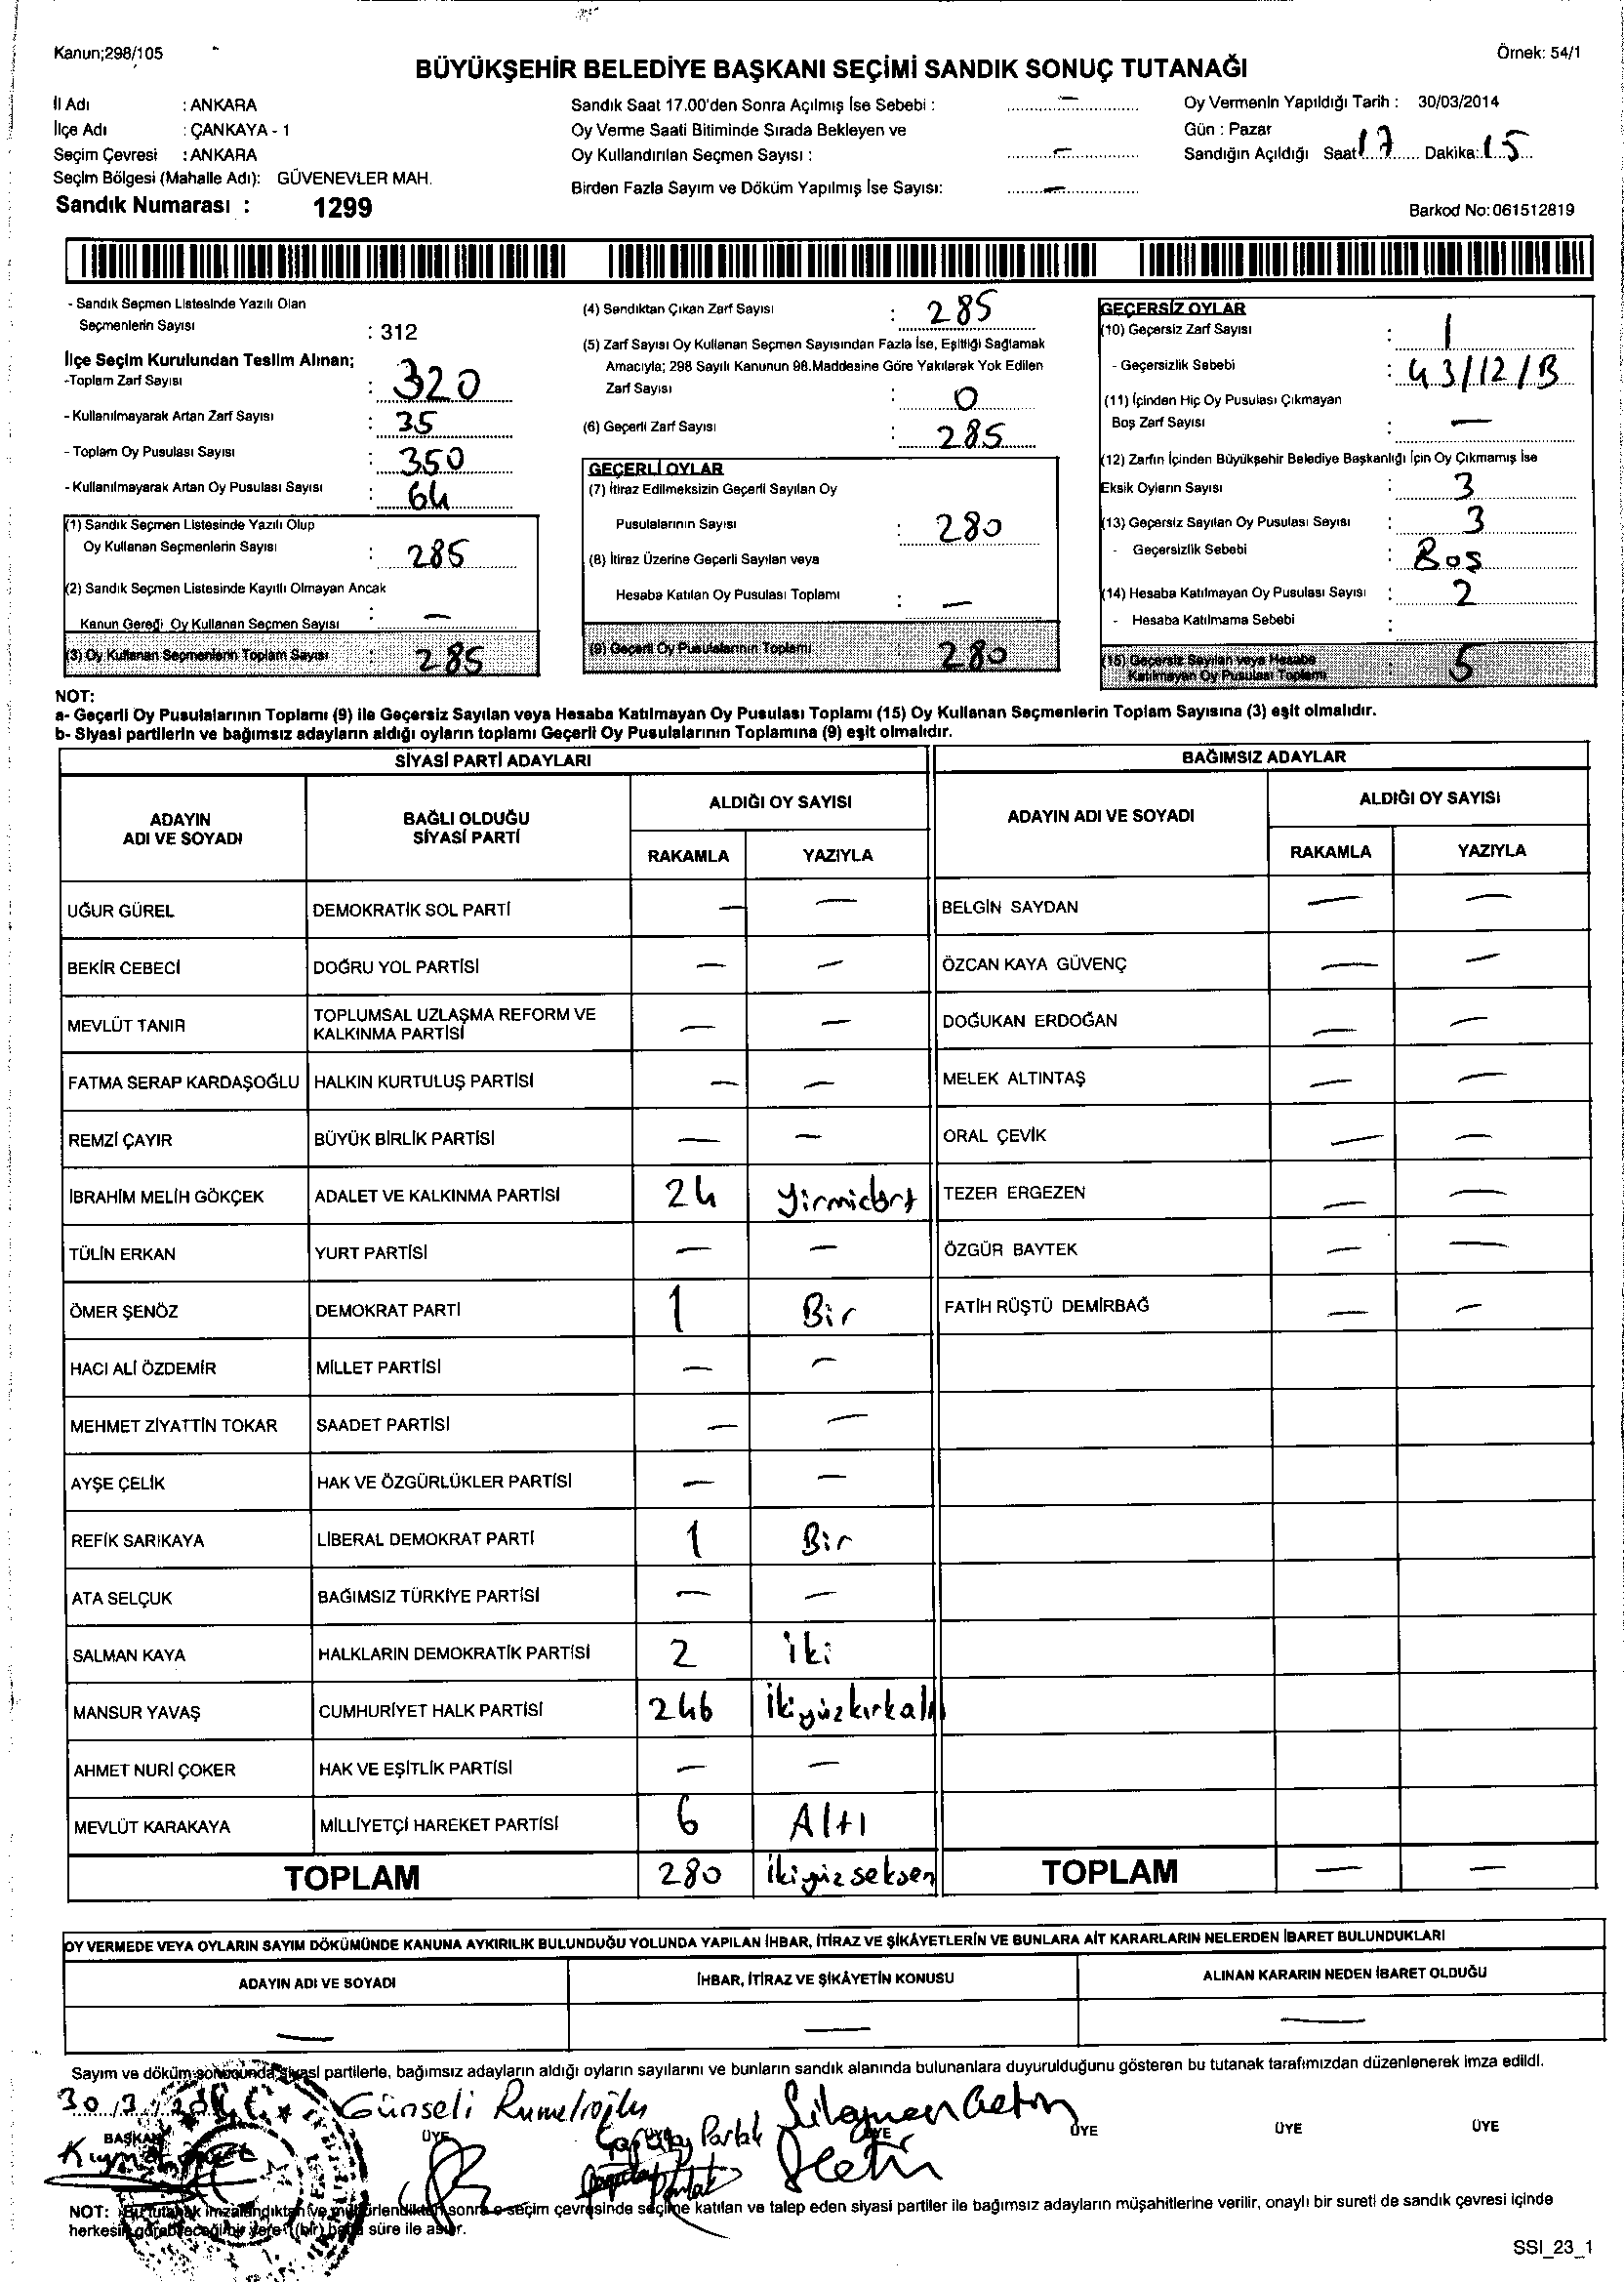 Kanun;298/105
Örnek: 54/1
BÜYÜKŞEHİR BELEDİYE BAŞKANI SEÇİMİ SANDIK SONUÇ TUTANAĞI
İl Adı : ANKARA
İlçe Adı : ÇANKAYA - 1
Seçim Çevresi : ANKARA
Seçim Bölgesi (Mahalle Adı): GÜVENEVLER MAH.
Sandık Numarası : 1299
Sandık Saat 17.00'den Sonra Açılmış İse Sebebi : —
Oy Verme Saati Bitiminde Sırada Bekleyen ve
Oy Kullandırılan Seçmen Sayısı : —
Birden Fazla Sayım ve Döküm Yapılmış İse Sayısı: —
Oy Vermenin Yapıldığı Tarih : 30/03/2014
Gün : Pazar
Sandığın Açıldığı Saat 17 Dakika: 15
Barkod No: 061512819
- Sandık Seçmen Listesinde Yazılı Olan
Seçmenlerin Sayısı : 312
İlçe Seçim Kurulundan Teslim Alınan;
-Toplam Zarf Sayısı : 320
- Kullanılmayarak Artan Zarf Sayısı : 35
- Toplam Oy Pusulası Sayısı : 350
- Kullanılmayarak Artan Oy Pusulası Sayısı : 64
(1) Sandık Seçmen Listesinde Yazılı Olup
Oy Kullanan Seçmenlerin Sayısı : 285
(2) Sandık Seçmen Listesinde Kayıtlı Olmayan Ancak
Kanun Gereği Oy Kullanan Seçmen Sayısı : —
(3) Oy Kullanan Seçmenlerin Toplam Sayısı : 285
(4) Sandıktan Çıkan Zarf Sayısı : 285
(5) Zarf Sayısı Oy Kullanan Seçmen Sayısından Fazla İse, Eşitliği Sağlamak
Amacıyla; 298 Sayılı Kanunun 98.Maddesine Göre Yakılarak Yok Edilen
Zarf Sayısı : 0
(6) Geçerli Zarf Sayısı : 285
GEÇERLİ OYLAR
(7) İtiraz Edilmeksizin Geçerli Sayılan Oy
Pusulalarının Sayısı : 280
(8) İtiraz Üzerine Geçerli Sayılan veya
Hesaba Katılan Oy Pusulası Toplamı : —
(9) Geçerli Oy Pusulalarının Toplamı : 280
GEÇERSİZ OYLAR
(10) Geçersiz Zarf Sayısı : 1
- Geçersizlik Sebebi : 43/12/B
(11) İçinden Hiç Oy Pusulası Çıkmayan
Boş Zarf Sayısı : —
(12) Zarfın İçinden Büyükşehir Belediye Başkanlığı İçin Oy Çıkmamış İse
Eksik Oyların Sayısı : 3
(13) Geçersiz Sayılan Oy Pusulası Sayısı : 3
- Geçersizlik Sebebi : Boş
(14) Hesaba Katılmayan Oy Pusulası Sayısı : 2
- Hesaba Katılmama Sebebi :
(15) Geçersiz Sayılan veya Hesaba
Katılmayan Oy Pusulası Toplamı : 5
NOT:
a- Geçerli Oy Pusulalarının Toplamı (9) ile Geçersiz Sayılan veya Hesaba Katılmayan Oy Pusulası Toplamı (15) Oy Kullanan Seçmenlerin Toplam Sayısına (3) eşit olmalıdır.
b- Siyasi partilerin ve bağımsız adayların aldığı oyların toplamı Geçerli Oy Pusulalarının Toplamına (9) eşit olmalıdır.
SİYASİ PARTİ ADAYLARI
BAĞIMSIZ ADAYLAR
ADAYIN ADI VE SOYADI
BAĞLI OLDUĞU SİYASİ PARTİ
ALDIĞI OY SAYISI
RAKAMLA YAZIYLA
ADAYIN ADI VE SOYADI
ALDIĞI OY SAYISI
RAKAMLA YAZIYLA
UĞUR GÜREL DEMOKRATİK SOL PARTİ — — BELGİN SAYDAN — —
BEKİR CEBECİ DOĞRU YOL PARTİSİ — — ÖZCAN KAYA GÜVENÇ — —
MEVLÜT TANIR TOPLUMSAL UZLAŞMA REFORM VE KALKINMA PARTİSİ — — DOĞUKAN ERDOĞAN — —
FATMA SERAP KARDAŞOĞLU HALKIN KURTULUŞ PARTİSİ — — MELEK ALTINTAŞ — —
REMZİ ÇAYIR BÜYÜK BİRLİK PARTİSİ — — ORAL ÇEVİK — —
İBRAHİM MELİH GÖKÇEK ADALET VE KALKINMA PARTİSİ 24 Yirmidört TEZER ERGEZEN — —
TÜLİN ERKAN YURT PARTİSİ — — ÖZGÜR BAYTEK — —
ÖMER ŞENÖZ DEMOKRAT PARTİ 1 Bir FATİH RÜŞTÜ DEMİRBAĞ — —
HACI ALİ ÖZDEMİR MİLLET PARTİSİ — —
MEHMET ZİYATTİN TOKAR SAADET PARTİSİ — —
AYŞE ÇELİK HAK VE ÖZGÜRLÜKLER PARTİSİ — —
REFİK SARIKAYA LİBERAL DEMOKRAT PARTİ 1 Bir
ATA SELÇUK BAĞIMSIZ TÜRKİYE PARTİSİ — —
SALMAN KAYA HALKLARIN DEMOKRATİK PARTİSİ 2 iki
MANSUR YAVAŞ CUMHURİYET HALK PARTİSİ 246 İkiyüzkırkaltı
AHMET NURİ ÇOKER HAK VE EŞİTLİK PARTİSİ — —
MEVLÜT KARAKAYA MİLLİYETÇİ HAREKET PARTİSİ 6 Altı
TOPLAM 280 İkiyüzseksen TOPLAM — —
OY VERMEDE VEYA OYLARIN SAYIM DÖKÜMÜNDE KANUNA AYKIRILIK BULUNDUĞU YOLUNDA YAPILAN İHBAR, İTİRAZ VE ŞİKÂYETLERİN VE BUNLARA AİT KARARLARIN NELERDEN İBARET BULUNDUKLARI
ADAYIN ADI VE SOYADI İHBAR, İTİRAZ VE ŞİKÂYETİN KONUSU ALINAN KARARIN NEDEN İBARET OLDUĞU
— — —
Sayım ve döküm sonucunda siyasi partilerle, bağımsız adayların aldığı oyların sayılarını ve bunların sandık alanında bulunanlara duyurulduğunu gösteren bu tutanak tarafımızdan düzenlenerek imza edildi.
30/3/
Günseli
BAŞKAN ÜYE ÜYE ÜYE ÜYE ÜYE ÜYE
Çağatay Parlak
NOT: Bu tutanak imzalandıktan ve mühürlendikten sonra o seçim çevresinde seçime katılan ve talep eden siyasi partiler ile bağımsız adayların müşahitlerine verilir, onaylı bir sureti de sandık çevresi içinde
herkesin görebileceği bir yere 1 (bir) hafta süre ile asılır.
SSI_23_1